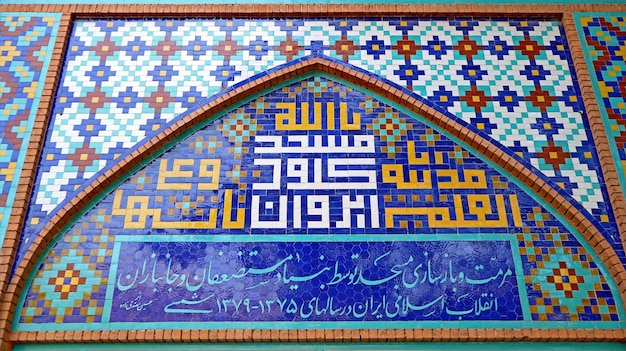 یا الله
انا مدینة العلم
مسجد کبود ایروان
و علی بابها
مرمت و بازسازی مسجد توسط بنیاد مستضعفان و جانبازان
انقلاب اسلامی ایران در سالهای ۱۳۷۵-۱۳۷۹ شمسی